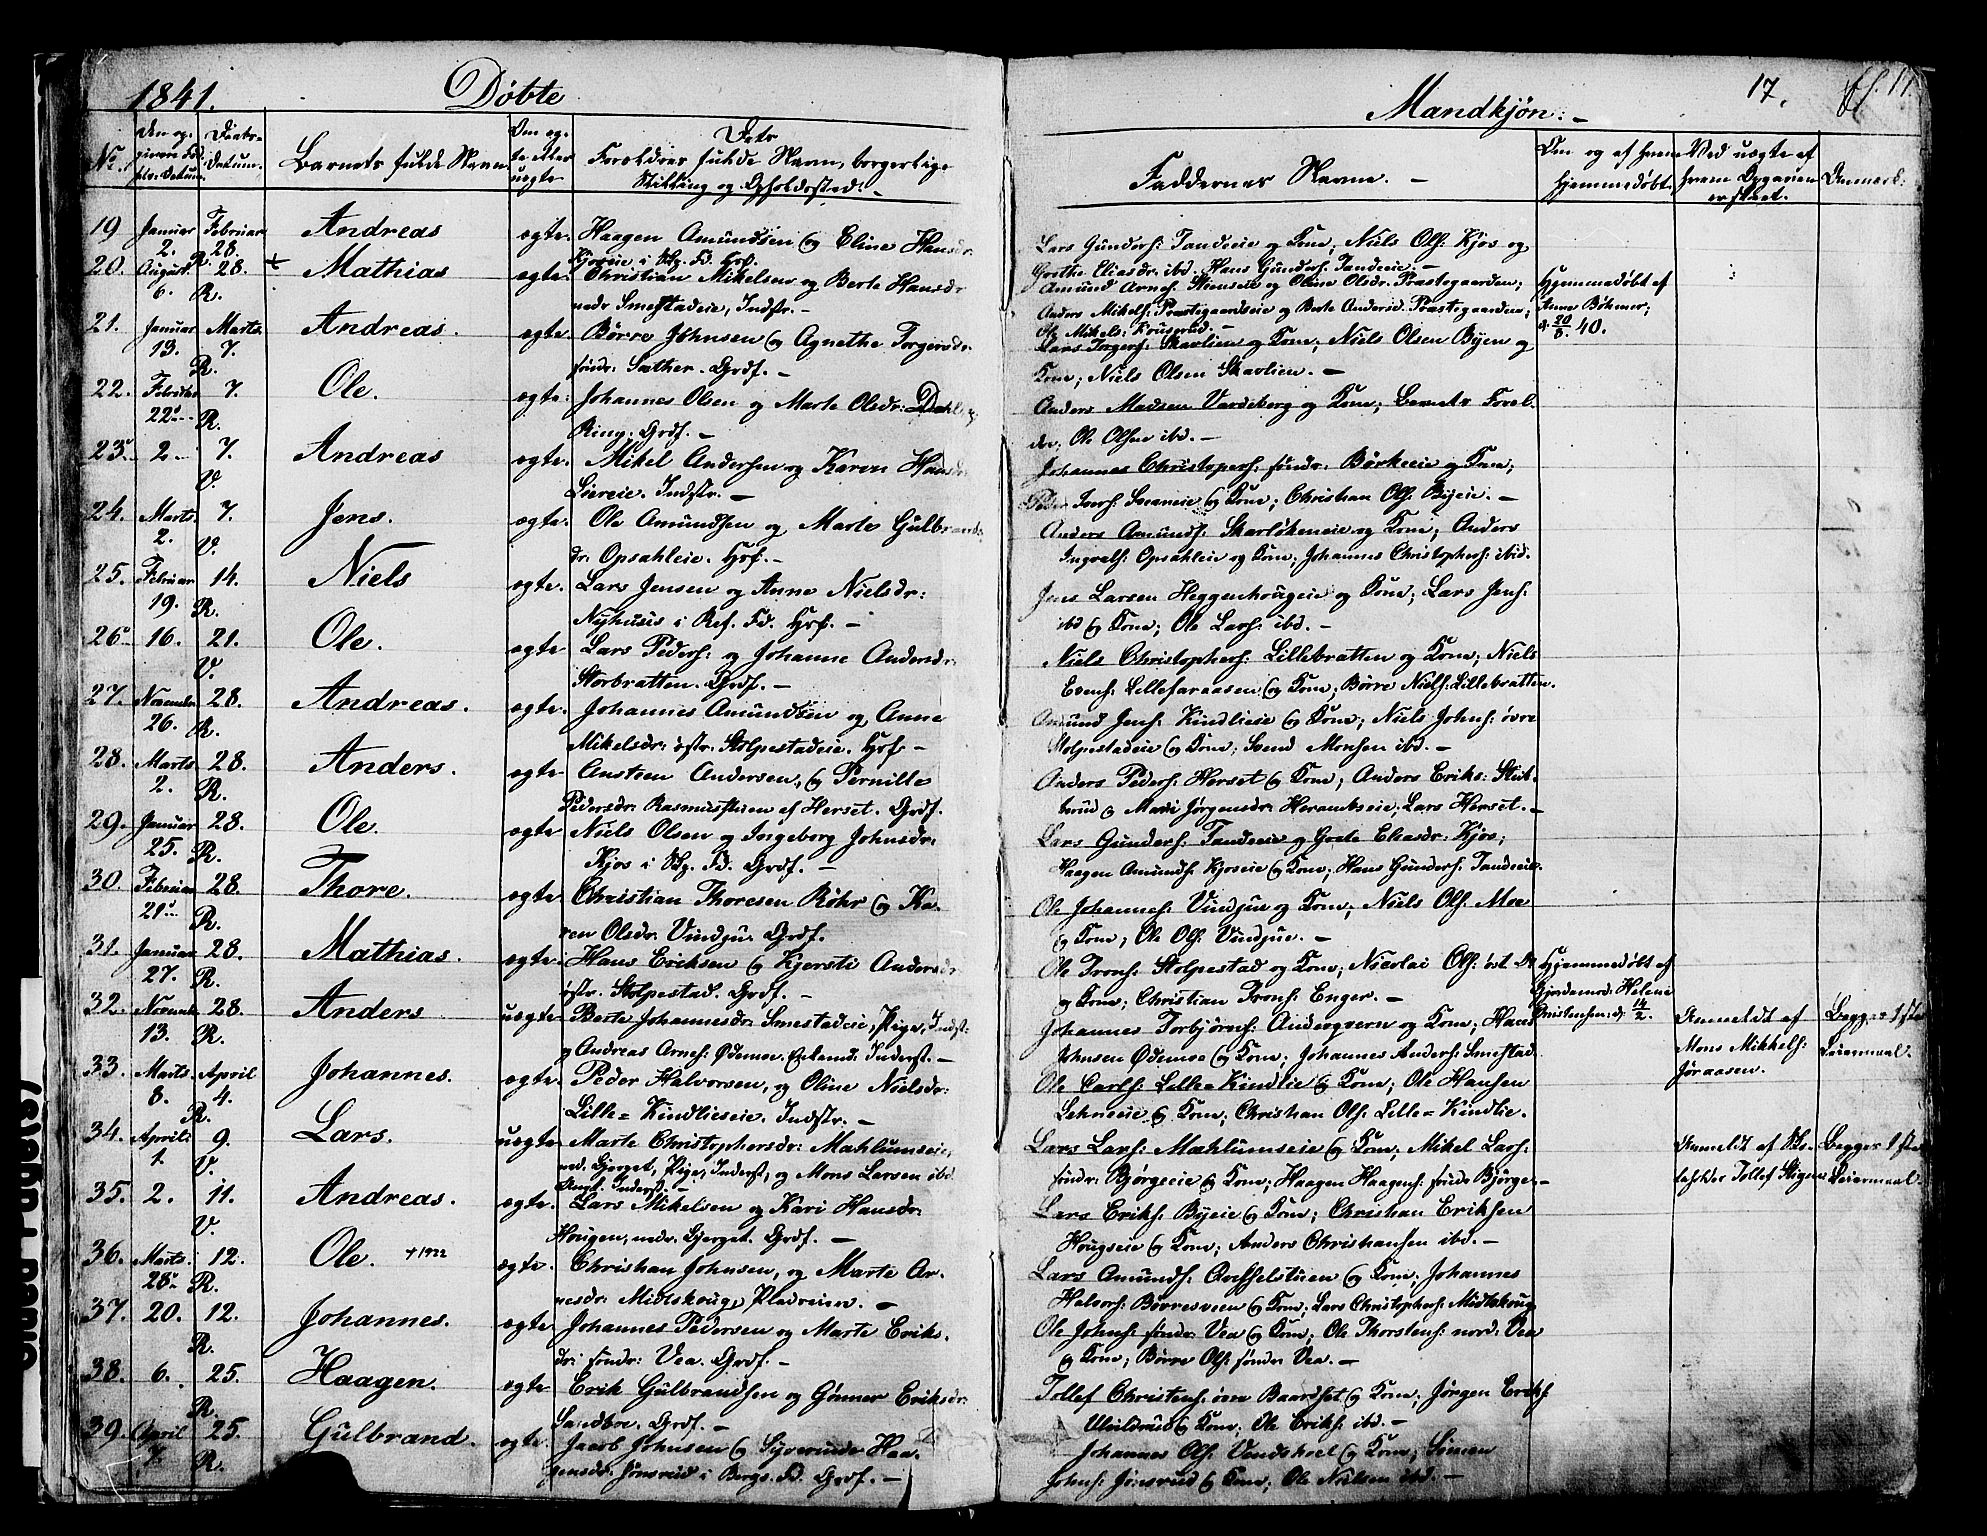 1841. Døbte
Mandkjøn:- 17.
No. Barnets fulde Navn Foreldres fulde Navn, borgerlige
Stilling og Opholdssted. -
Faddernes Navne. -
hjemmedøbt. Anmerk:
19 Januar 2. Februar 28. R. Andreas ægte. Haagen Amundsen og Eline Hansdr.
Lars Gunders: Tandeeie og Kone; Niels Ols: Kjos og
Grethe Eliasdr. ibd. Hans Gunders: Tandeeie. -
20. August 6. 28. R. + Mathias ægte. Christian Mikelsen og Berte Hansdr
nedr Smestadeie, Indstr. -
Amund Arnes: Stenseie og Oline Olsdr. Præstegaarden;
Anders Mikels: Præstegaardseie og Berte Andersd. Præstegaarden;
Hjemmedøbt af
Anne Böhmer;
21. Januar 13. Marts 7. R. Andreas. ægte. Børre Johnsen og Agnethe Torgersdr.
søndr: Sæther. Grdf. -
Lars Torgers: Skavlien og Kone; Niels Olsen Byen og
Kone; Niels Olsen Skavlien. -
22. Februar 22. 7. R. Ole. ægte. Johannes Olsen og Marte Olsdr: Dahl
Ring; Grdf. -
Anders Madsen Vardeberg og Kone; Barnets Forel-
dre. Ole Olsen ibd. -
23. 2. 7. V. Andreas ægte. Mikel Andersen og Karen Hansdr
Liereie. Indstr. -
Johannes Christopers: søndr. Børkeeie og Kone;
Peder Ivers: Sveneeie og Kone; Christian Ols: Byeie. -
24. Marts 2. 7. V. Jens. ægte. Ole Amundsen og Marte Gulbrands
dr. Opsahleie. Hrf. -
Anders Amunds: Skarløkeneie og Kone; Anders
Ingvels: Opsahleie og Kone; Johannes Christophers: ibid.
25. Februar 19. 14. R. Niels ægte. Lars Jensen og Anne Nielsdr:
Nyhusie i Ref. Fd. Hrf. -
Jens Larsen Heggenhougeie og Kone; Lars Jens:
ibd og Kone; Ole Lars: ibd. -
26. 16. 21. V. Ole. ægte Lars Peders: og Johanne Andersdr.
Storbratten. Grdf. -
Niels Christophers: Lillebratten og Kone; Niels
Evens: Lillefaraasen og Kone; Børre Niels: Lillebratten.
27. November 26. 28. R. Andreas. ægte. Johannes Amundsen og Anne
Mikelsdr: østr: Stolpestadeie. Hrf. -
Amund Jens: Kindlieie og Kone; Niels Johns: øvre
Stolpestadeie og Kone; Svend Monsen ibd. -
28. Marts 2. 28. R. Anders. ægte Austeen Andersen, og Pernille
Pedersdr: Rasmusstuen af Herset. Grdf.
Anders Peders: Herset og Kone; Anders Eriks: Stik-
terud og Mari Jørgensdr. Herambseie; Lars Herset. -
29. Januar 25. 28. R. Ole. ægte Niels Olsen og Ingeborg Johnsdr.
Kjos i Sp. Fd. Grdf. -
Lars Gunders: Tandeeie og Grete Eliasdr: Kjos;
Haagen Amunds: Kjoseie og Kone; Hans Gunders: Tandeeie.
30. Februar 21. 28. R. Thore. ægte Christian Thoresen Röhr og Ka-
ren Olsdr. Vindju. Grdf.
Ole Johannes: Vindjue og Kone; Niels Ols: Moe
og Kone; Ole Ols: Vindjue. -
31. Januar 27. 28. R. Mathias. ægte. Hans Eriksen og Kjersti Andersdr
østr. Stolpestad. Grdf. -
Ole Irons: Stolpestad og Kone; Nicolai Ols: øst St
og Kone; Christian Trons: Enger. -
Hjemmedøbt af
Gjordemod: Helene
Christensen: d: 14/2.
32. November 13. 28. R. Anders uægte Berte Johannesdr Smestadeie, Pige, Indst:
og Andreas Arnes: Ødemoe. Inderst. -
Johannes Torbjørns: Andergvern og Kone; Hans
Johnsen Ødemoe og Kone; Johannes Anders: Smestad.
Anmeldt af
Mons Mikkels:
Jøraasen.
Begges 1ste
Leiermaal.
33. Marts 8. April 4. R. Johannes. ægte Peder Halvorsen, og Oline Nielsdr:
Lille= Kindlieeie. Indstr. -
Ole Carls: Lille= Kindlie og Kone; Ole Hansen
Lehneeie og Kone; Christian Ols: Lille= Kindlie.
34. April 1. 9. V. Lars. uægte Marte Christophersdr: Mæhlumseie,
ned. Bjerget, Pige, Inderst, og Mons Larsen ibd
Lars Lars: Mæhlumseie og Kone; Mikel Lars:
søndr: Bjørgeeie og Kone; Haagen Haagens: søndr Bjørge. -
Anmeldt af
Tollef Stigen
Begges 1ste
Leiermaal.
35. 2. 11. V. Andreas. ægte. Lars Mikelsen og Kari Hansdr.
Hougen, nedr. Bjerget. Grdf. -
Lars Eriks: Byeie og Kone; Christian Eriksen
Hougseie og Kone; Anders Christiansen ibd. -
36. Marts 28. 12. R. Ole. +1922 ægte. Christian Johnsen, og Marte Ar-
nesdr: Midtskoug, Pladseien. -
Lars Amunds: Aasselstuen og Kone; Johannes
Halvors: Børresveen og Kone; Lars Christophers: Midtskoug
37. 20. 12. R. Johannes. ægte Johannes Pedersen og Marte Eriks-
dr: søndr: Vea. Grdf. -
Ole Johns: søndr Vea og Kone; Ole Thorstens: nord: Vea
og Kone; Børre Ols: søndr Vea. -
38. 6. 25. R. Haagen. ægte Erik Gulbrandsen og Gønner Eriksdr:
Sandboe. Grdf. -
Tollef Christens: øvre Baardset og Kone; Jørgen Eriks
Ulvildsrud og Kone; Ole Eriks: ibd. -
39. April 7. 25. R. Gulbrand. ægte. Jacob Johnsen og Syverinde Haa-
gensdr. Jönsrud i Bergs. Fd. Grdf. -
Johannes Ols: Vendskoel og Kone; Simen
Johns: Jönsrud og Kone; Ole Nielsen ibd. -